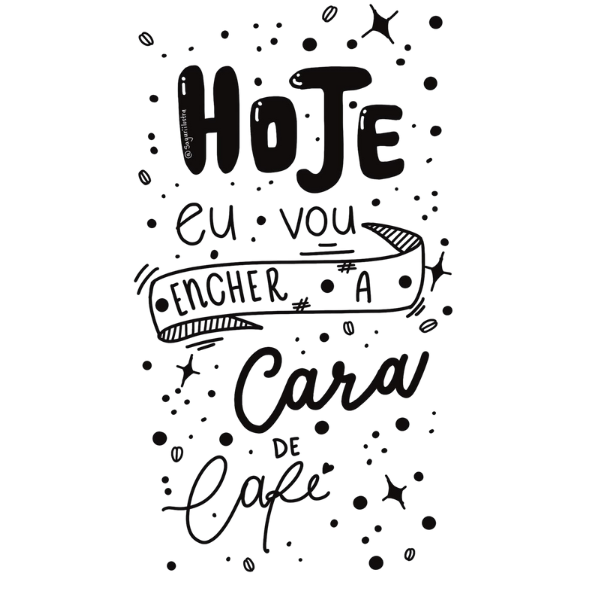 HOJE
@Sagariilustra
eu vou
ENCHER A
Cara
DE
Café